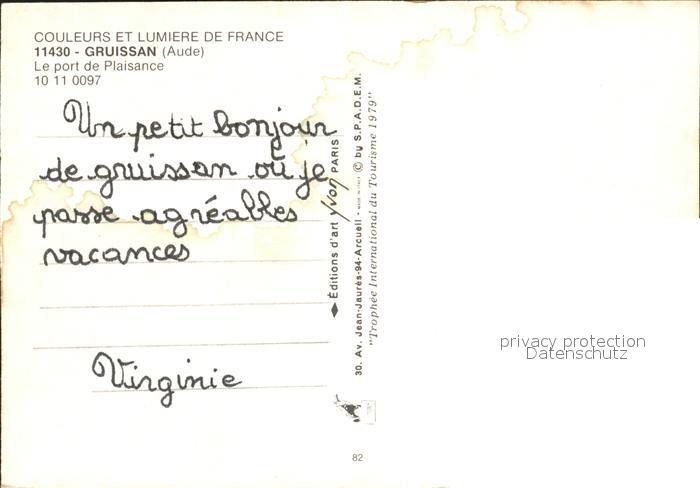 COULEURS ET LUMIERE DE FRANCE
11430 - GRUISSAN (Aude)
Le port de Plaisance
10 11 0097
Un petit bonjour
de gruissan où je
passe agréables
vacances
Virginie
Éditions d'art yvon PARIS
30. Av. Jean-Jaurès-94-Arcueil - MADE IN FRANCE © by S.P.A.D.E.M.
"Trophée International du Tourisme 1979"
82
privacy protection
Datenschutz